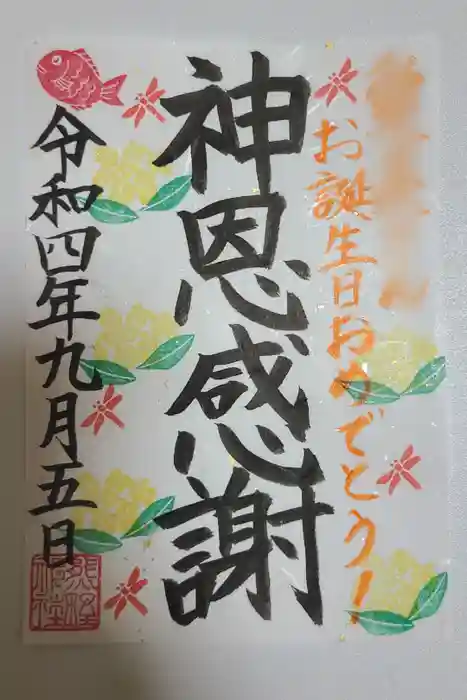 お誕生日おめでとう!
神恩感謝
令和四年九月五日